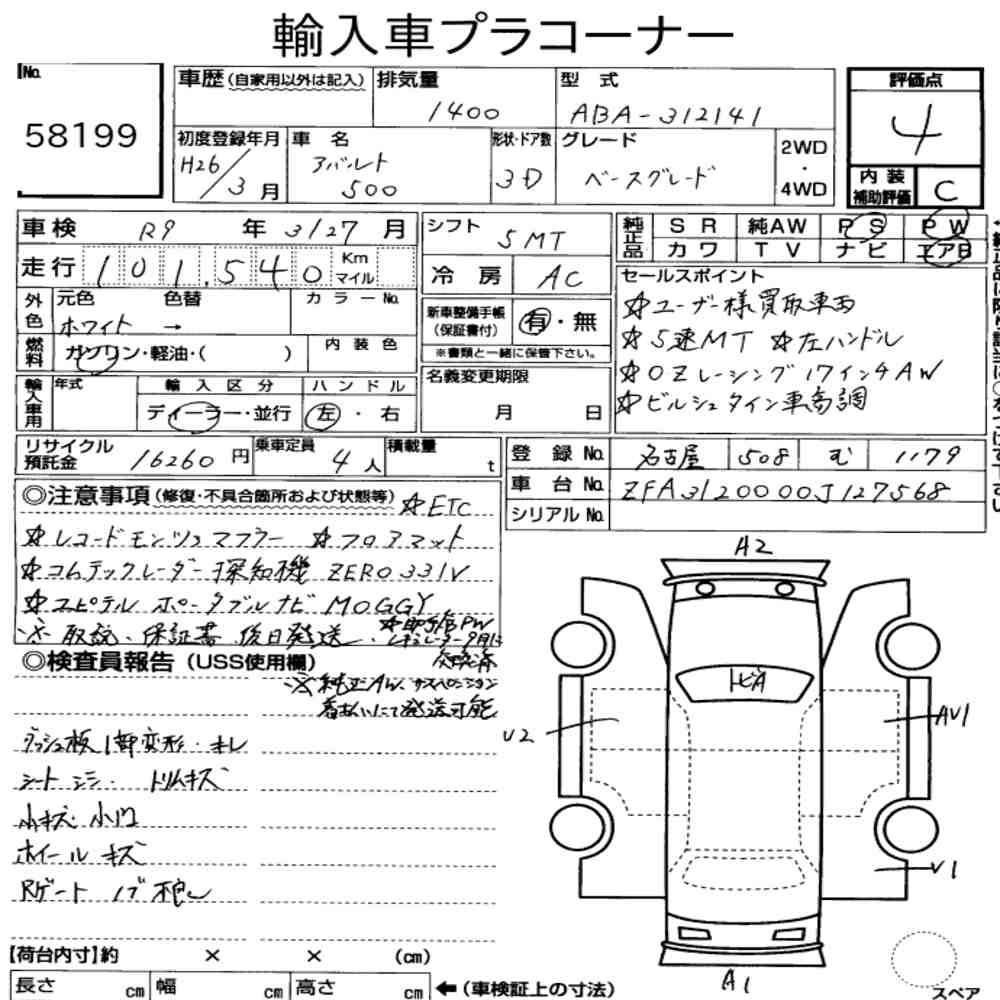 輸入車プラコーナー
No.
58199
車歴(自家用以外は記入)
排気量
1400
型式
ABA-312141
評価点
4
初度登録年月
H26/3月
車名
アバルト
500
形状・ドア数
3D
グレード
ベースグレード
2WD
・
4WD
内装
補助評価
C
車検 R9 年 3/27 月
シフト 5MT
純正品
SR 純AW PS PW
カワ TV ナビ エアB
走行 101.540 Km マイル
冷房 AC
セールスポイント
☆ユーザー様買取車両
☆5速MT ☆左ハンドル
☆OZレーシング17インチAW
☆ビルシュタイン車高調
外色
元色 色替
ホワイト →
カラーNo.
新車整備手帳
(保証書付)
有・無
※書類と一緒に保管下さい。
燃料
ガソリン・軽油・( )
内装色
名義変更期限
月 日
輸入車用
年式
輸入区分
ディーラー・並行
ハンドル
左・右
リサイクル
預託金 16260円
乗車定員
4人
積載量
t
登録No. 名古屋 508 む 1179
車台No. ZFA3120000J127568
シリアルNo.
◎注意事項(修復・不具合箇所および状態等)☆ETC
☆レコードモンツァマフラー ☆フロアマット
☆コムテックレーダー探知機 ZERO331V
☆ユピテル ポータブルナビ MOGGY
※取説、保証書 後日発送
◎検査員報告(USS使用欄)
※純正AW、サスペンション
着払いにて発送可能
ダッシュ板1部変形・キレ
シート シミ・ トリムキズ
小キズ 小凹
ホイールキズ
Rゲート ノブ
【荷台内寸】約 × × (cm)
長さ cm 幅 cm 高さ cm
←(車検証上の寸法)
A2
トビA
U2
AU1
U1
A1
スペア